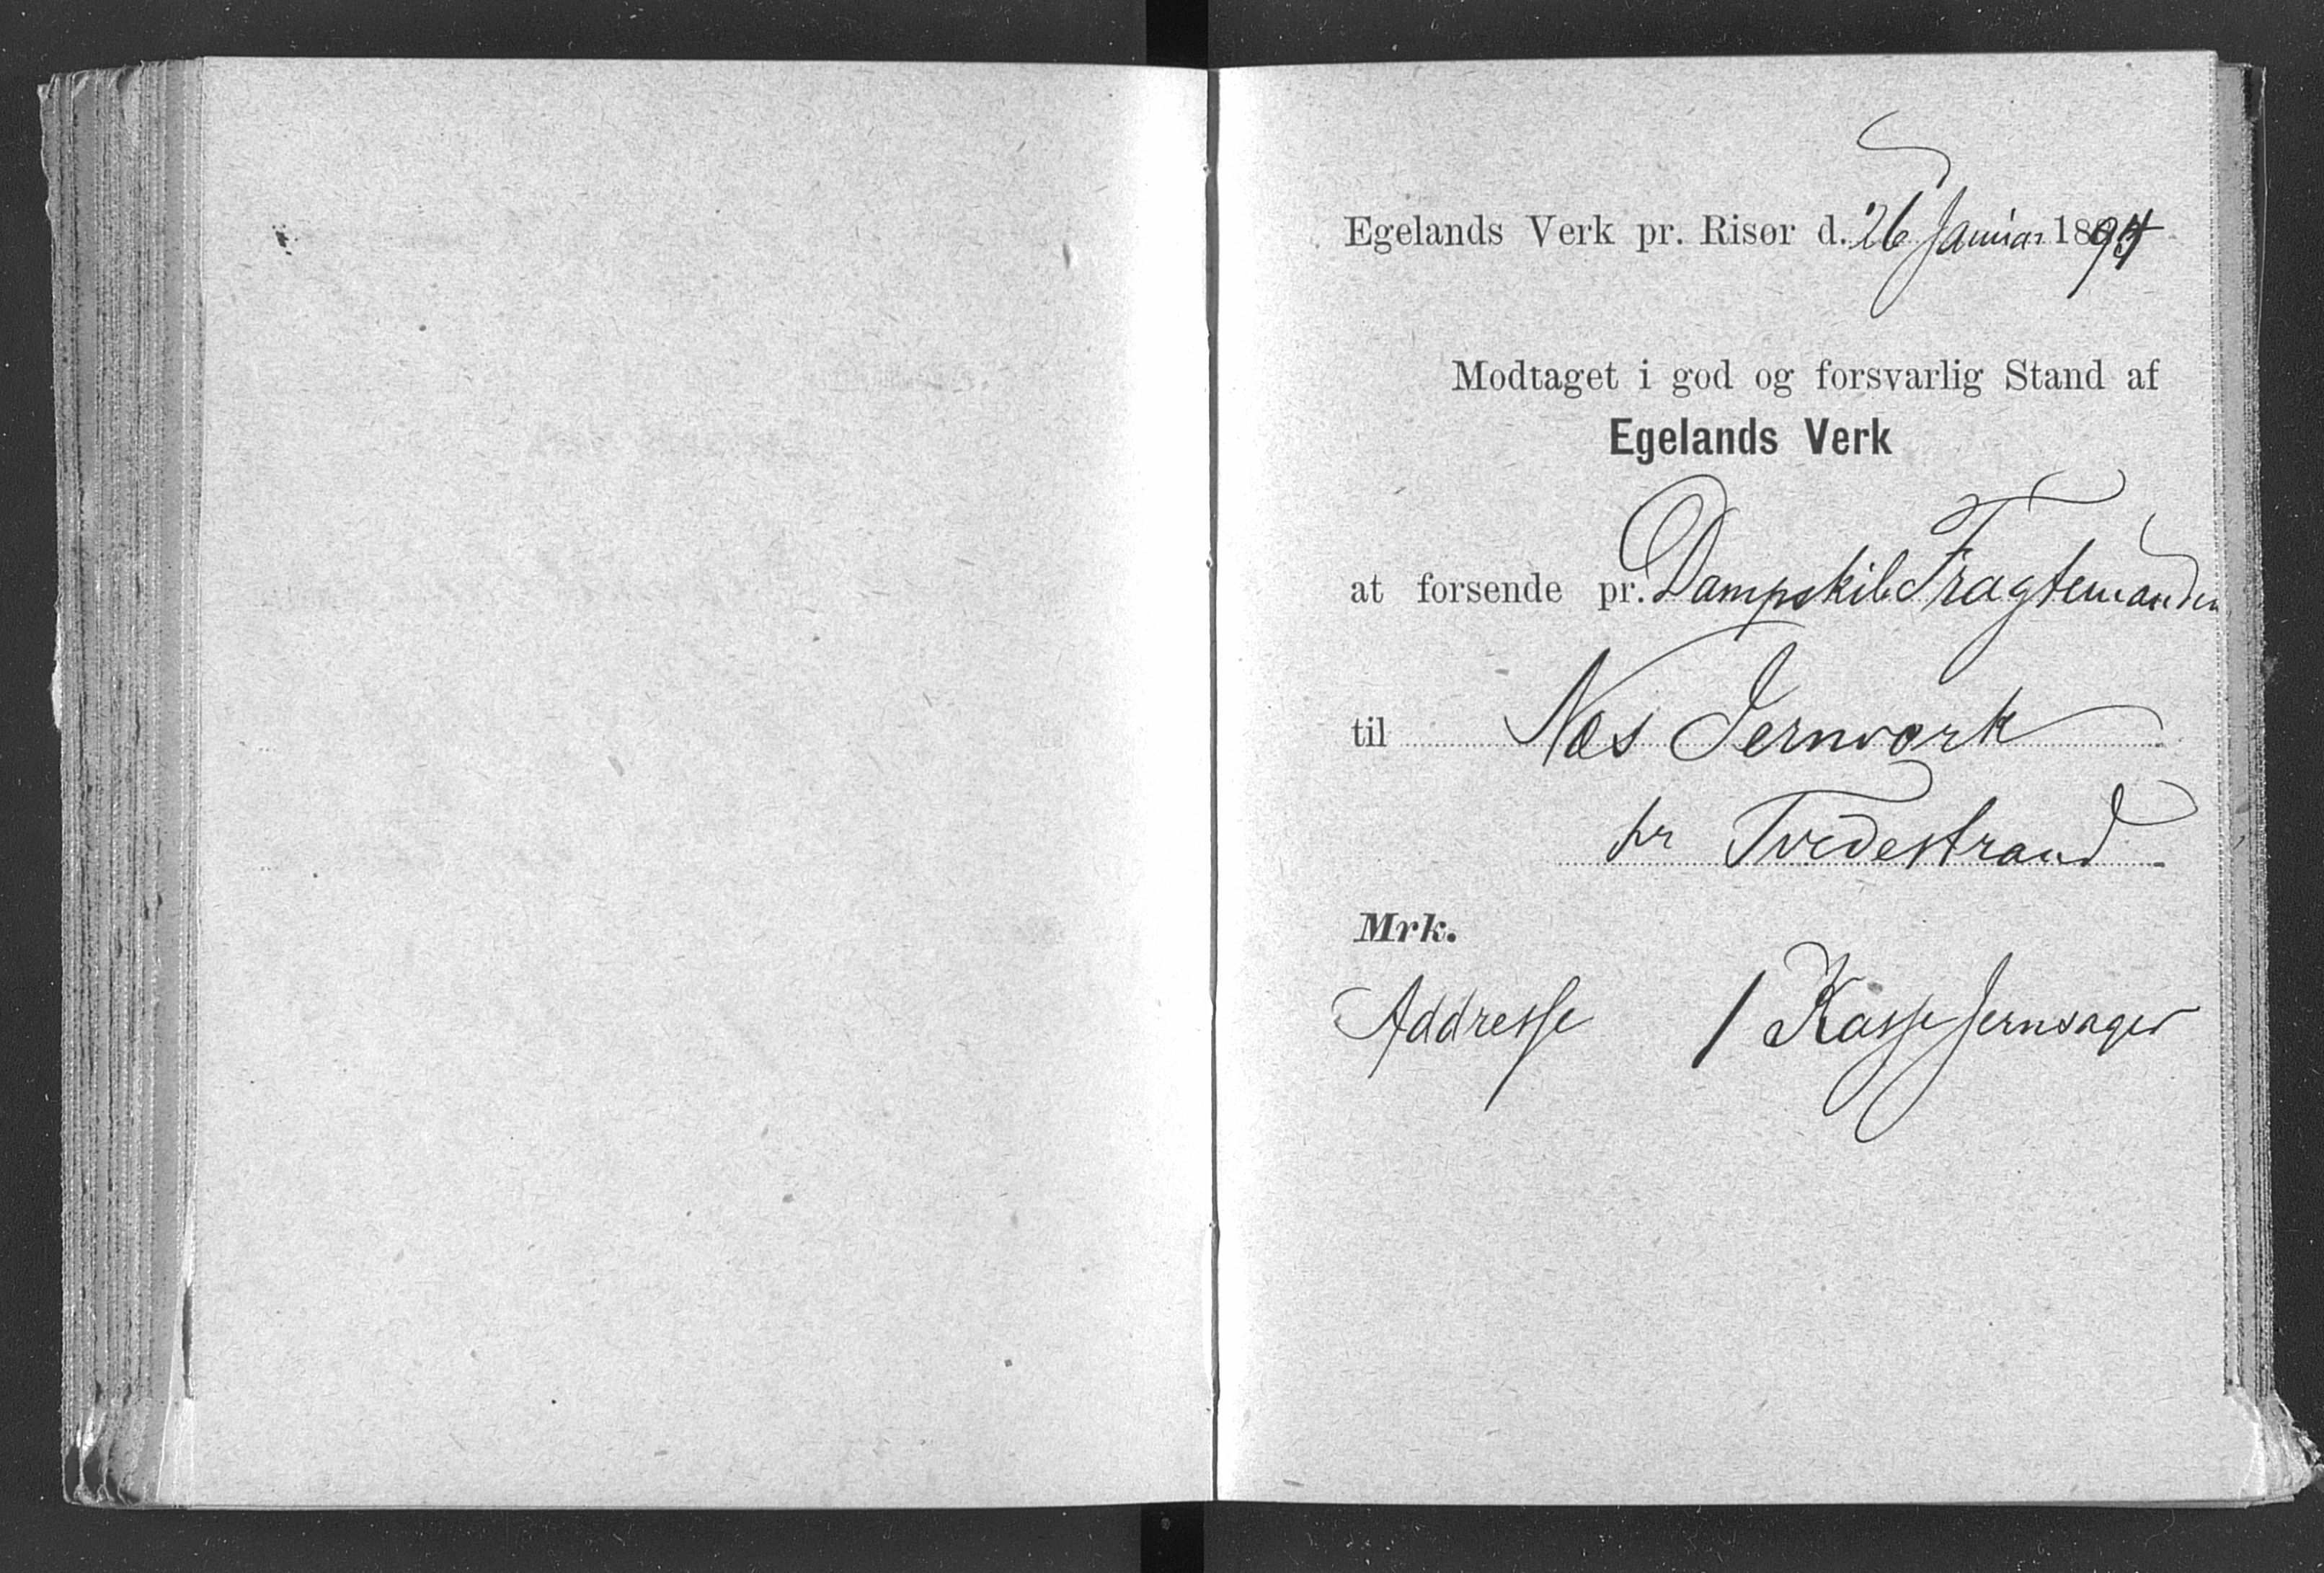 Egelands Verk pr. Risør d. 26 Januar 1894
Modtaget i god og forsvarlig Stand af
Egelands Verk
at forsende pr. Dampskib Fragtemanden
til Næs Jernværk
pr Tvedestrand
Mrk.
Addresse 1 Kasse Jernsager